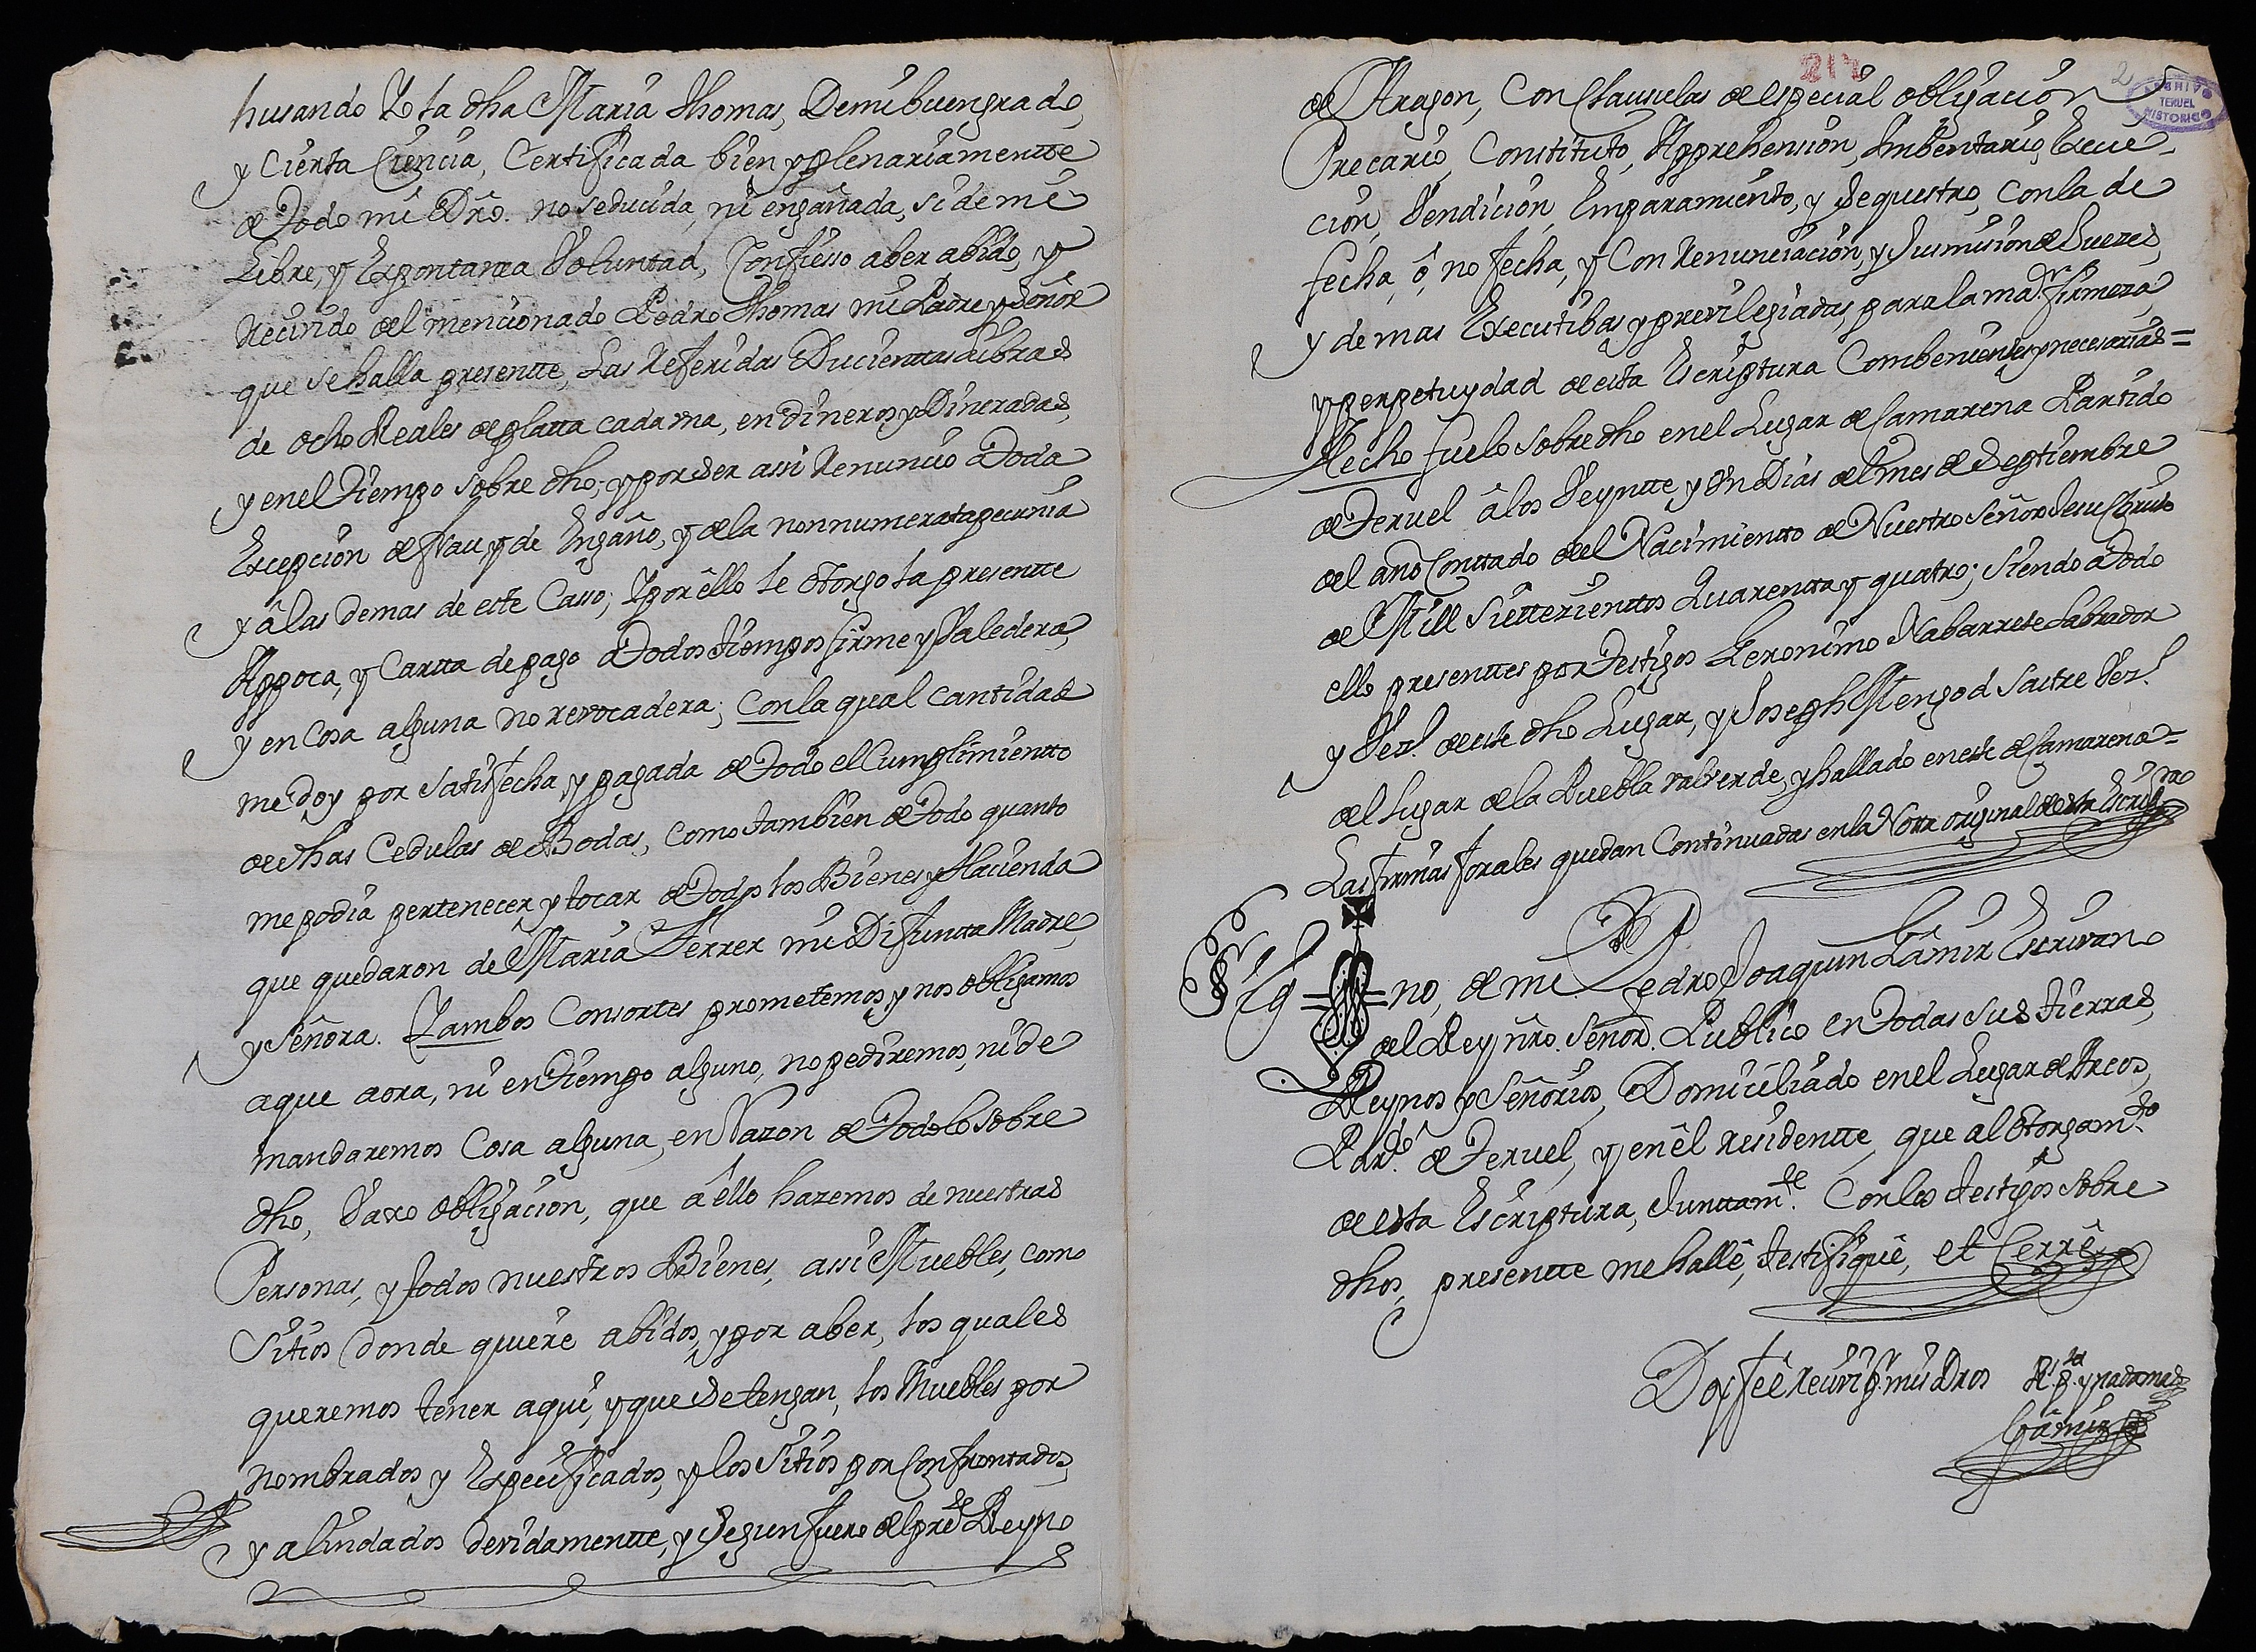 husando Yo la dha Maria Thomas, Demi buen grado,
y Cierta Ciencia, Certificada bien y plenariamentte
de Todo mi Dro. no seducida, ni engañada, si de mi
Libre, y Expontanea Voluntad, Confiesso aber abido, y
Recivido del mencionado Pedro Thomas mi Padre y Señor
que se halla presentte, Las Referidas Ducienttas Libras
de ocho Reales de platta cada vna, en dineros, y Dineradas,
y en el Tiempo sobre dho; y por ser assi Renuncio a Toda
Excepcion de frau y de Engaño, y de la non numerata pecunia
y â las demas de este Casso; Y por ello le otorgo la presentte
Appoca, y Cartta de pago a Todos tiempos firme y Valedera,
y en Cosa alguna no revocadera; Con la qual cantidad
me doy por satisfecha, y pagada de Todo el Cumplimientto
de dhas Cedulas de Bodas, como tambien de Todo quanto
me podia pertenecer, y tocar de Todos los Bienes y Hacienda
que quedaron de Maria Ferrer mi Difuntta Madre,
y Señora. Y ambos Consortes prometemos, y nos obligamos
a que aora, ni en Tiempo alguno, no pediremos, ni de
mandaremos Cosa alguna, en Razon de Todo lo sobre
dho, Vaxo obligacion, que a ello hazemos de nuestras
Personas, y todos nuestros Bienes, assi Muebles, como
Sitios donde quiere abidos, y por aber, los quales
queremos tener aqui, y que se tengan, los Muebles por
nombrados, y Expecificados, y los Sitios por Confrontados,
y alindados devidamentte, y segun fuero del pred.te Reyno
217
2
ARCHIVO
TERUEL
HISTORICO
de Aragon, Con Clausulas de especial obligacion
Precario, Constituto, Apprehension, Imbentario, Execu-
cion, Vendicion, Emparamiento, y Sequestro, con la de
fecha, ô, no fecha, y Con Renunciacion, y Sumision de Juezes,
y de mas Executibas y previlegiadas, para la ma.or firmeza,
y perpetuydad de esta Escriptura Combenientes y necesarias=
Hecho fue lo sobredho en el Lugar de Camarena Partido
de Teruel â los Veyntte y Vn Dias del mes de Septiembre
del año Conttado del Nacimientto de Nuestro Señor Jesu Christo
de Mill Settecienttos Quarentta y quatro; siendo a Todo
ello presenttes por Testigos Geronimo Nabarrete Labrador
y Vez.o de este dho Lugar, y Joseph Mengod Sastre Vez.o
del Lugar de la Puebla valverde, y hallado en este de Camarena=
Las firmas forales quedan Continuadas en la Notta original de esta Escrip.ra
Sig no, de mi Pedro Joaquin Lamiz Escrivano
del Rey nro. Señor. Publico en Todas sus tierras,
Reynos y Señorios, Domiciliado en el Lugar de Arcos,
Par.do de Teruel, y en êl residentte, que al otorgam.to
de esta Escriptura, Junttam.te Con los testigos sobre
dhos, presentte me hallê, testifiquê, et Cerrê
Doy fee recivi p.r mis Dros